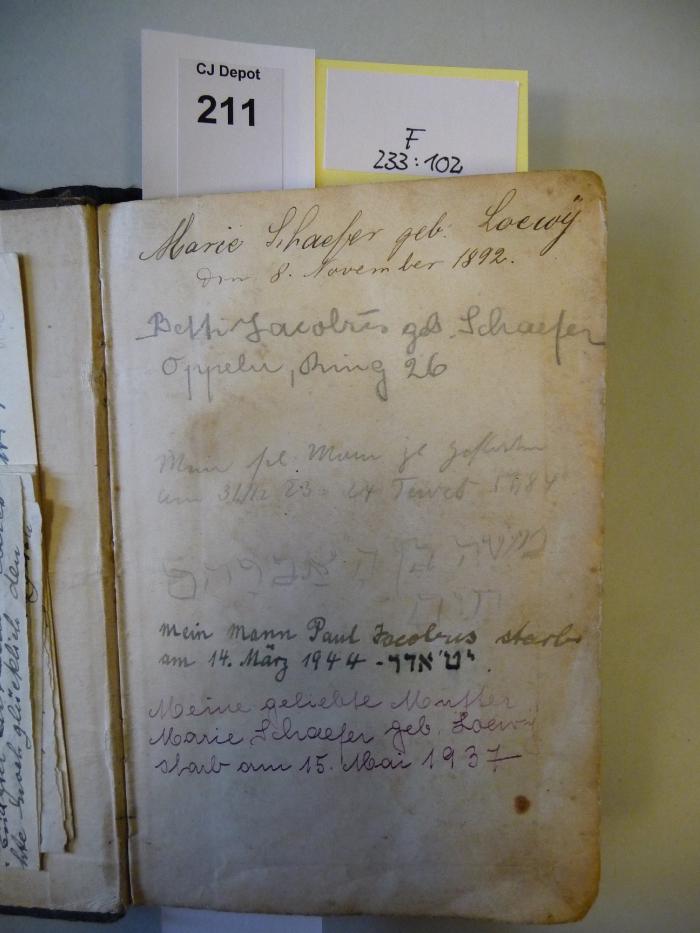 CJ Depot
211
F
233:102
Marie Schaefer geb. Loewÿ
den 8. November 1892.
Betti Jacobus geb. Schaefer
Oppeln, Ring 26
Mein sel. Mann ist gestorben
am 31/12 23 = 24 Tewet 5784
משה בן ר אברהם
mein Mann Paul Jacobus starb
am 14. März 1944 - י״ט אדר.
Meine geliebte Mutter
Marie Schaefer geb. Loewy
starb am 15. Mai 1937
glücklich den